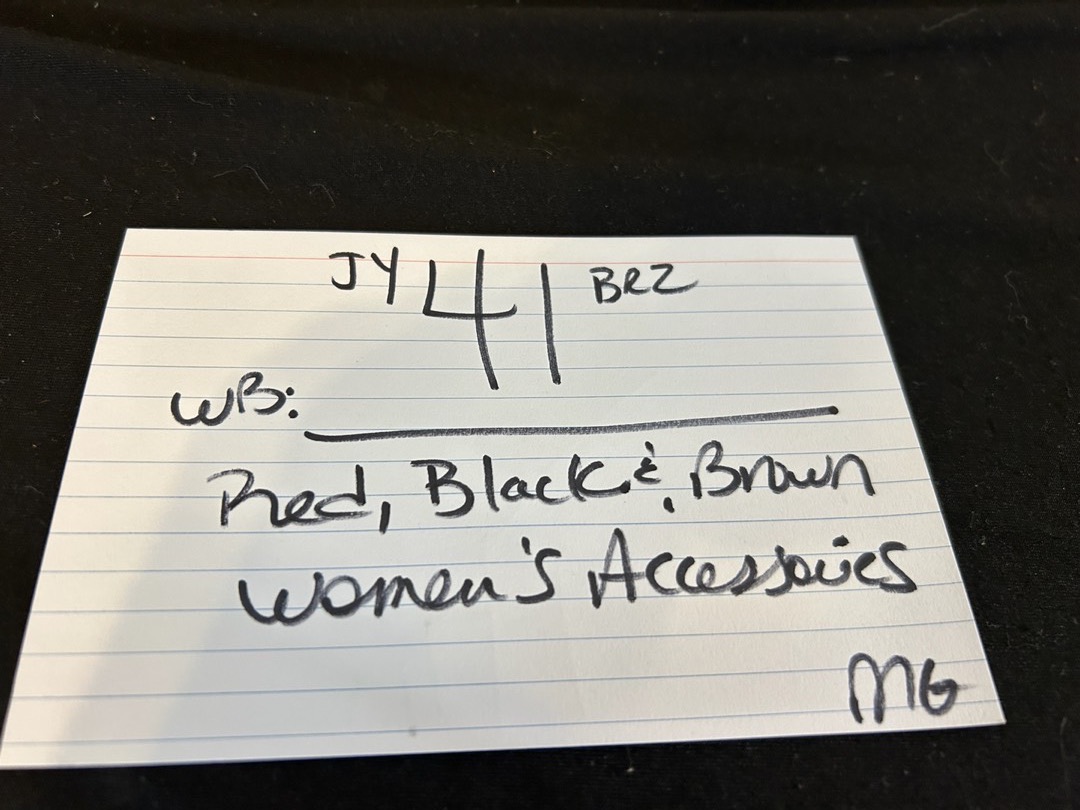 JY 41 BRZ
WB:
Red, Black & Brown
Women's Accessories
MG